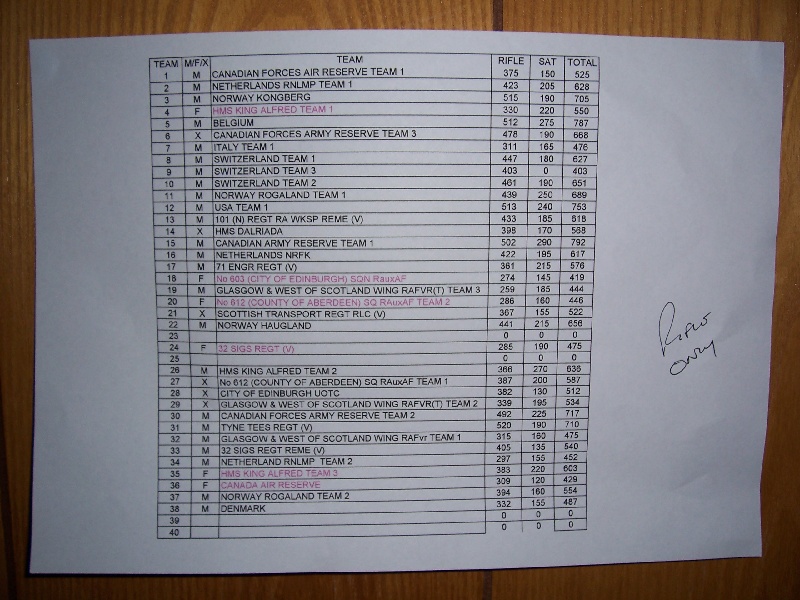 TEAM M/F/X TEAM RIFLE SAT TOTAL
1 M CANADIAN FORCES AIR RESERVE TEAM 1 375 150 525
2 M NETHERLANDS RNLMP TEAM 1 423 205 628
3 M NORWAY KONGBERG 515 190 705
4 F HMS KING ALFRED TEAM 1 330 220 550
5 M BELGIUM 512 275 787
6 X CANADIAN FORCES ARMY RESERVE TEAM 3 478 190 668
7 M ITALY TEAM 1 311 165 476
8 M SWITZERLAND TEAM 1 447 180 627
9 M SWITZERLAND TEAM 3 403 0 403
10 M SWITZERLAND TEAM 2 461 190 651
11 M NORWAY ROGALAND TEAM 1 439 250 689
12 M USA TEAM 1 513 240 753
13 M 101 (N) REGT RA WKSP REME (V) 433 185 618
14 X HMS DALRIADA 398 170 568
15 M CANADIAN ARMY RESERVE TEAM 1 502 290 792
16 M NETHERLANDS NRFK 422 195 617
17 M 71 ENGR REGT (V) 361 215 576
18 F No 603 (CITY OF EDINBURGH) SQN RauxAF 274 145 419
19 M GLASGOW & WEST OF SCOTLAND WING RAFVR(T) TEAM 3 259 185 444
20 F No 612 (COUNTY OF ABERDEEN) SQ RAuxAF TEAM 2 286 160 446
21 X SCOTTISH TRANSPORT REGT RLC (V) 367 155 522
22 M NORWAY HAUGLAND 441 215 656
23 0 0 0
24 F 32 SIGS REGT (V) 285 190 475
25 0 0 0
26 M HMS KING ALFRED TEAM 2 366 270 636
27 X No 612 (COUNTY OF ABERDEEN) SQ RAuxAF TEAM 1 387 200 587
28 X CITY OF EDINBURGH UOTC 382 130 512
29 X GLASGOW & WEST OF SCOTLAND WING RAFVR(T) TEAM 2 339 195 534
30 M CANADIAN FORCES ARMY RESERVE TEAM 2 492 225 717
31 M TYNE TEES REGT (V) 520 190 710
32 M GLASGOW & WEST OF SCOTLAND WING RAFvr TEAM 1 315 160 475
33 M 32 SIGS REGT REME (V) 405 135 540
34 M NETHERLAND RNLMP TEAM 2 297 155 452
35 F HMS KING ALFRED TEAM 3 383 220 603
36 F CANADA AIR RESERVE 309 120 429
37 M NORWAY ROGALAND TEAM 2 394 160 554
38 M DENMARK 332 155 487
39 0 0 0
40 0 0 0
RIFLE
ONLY